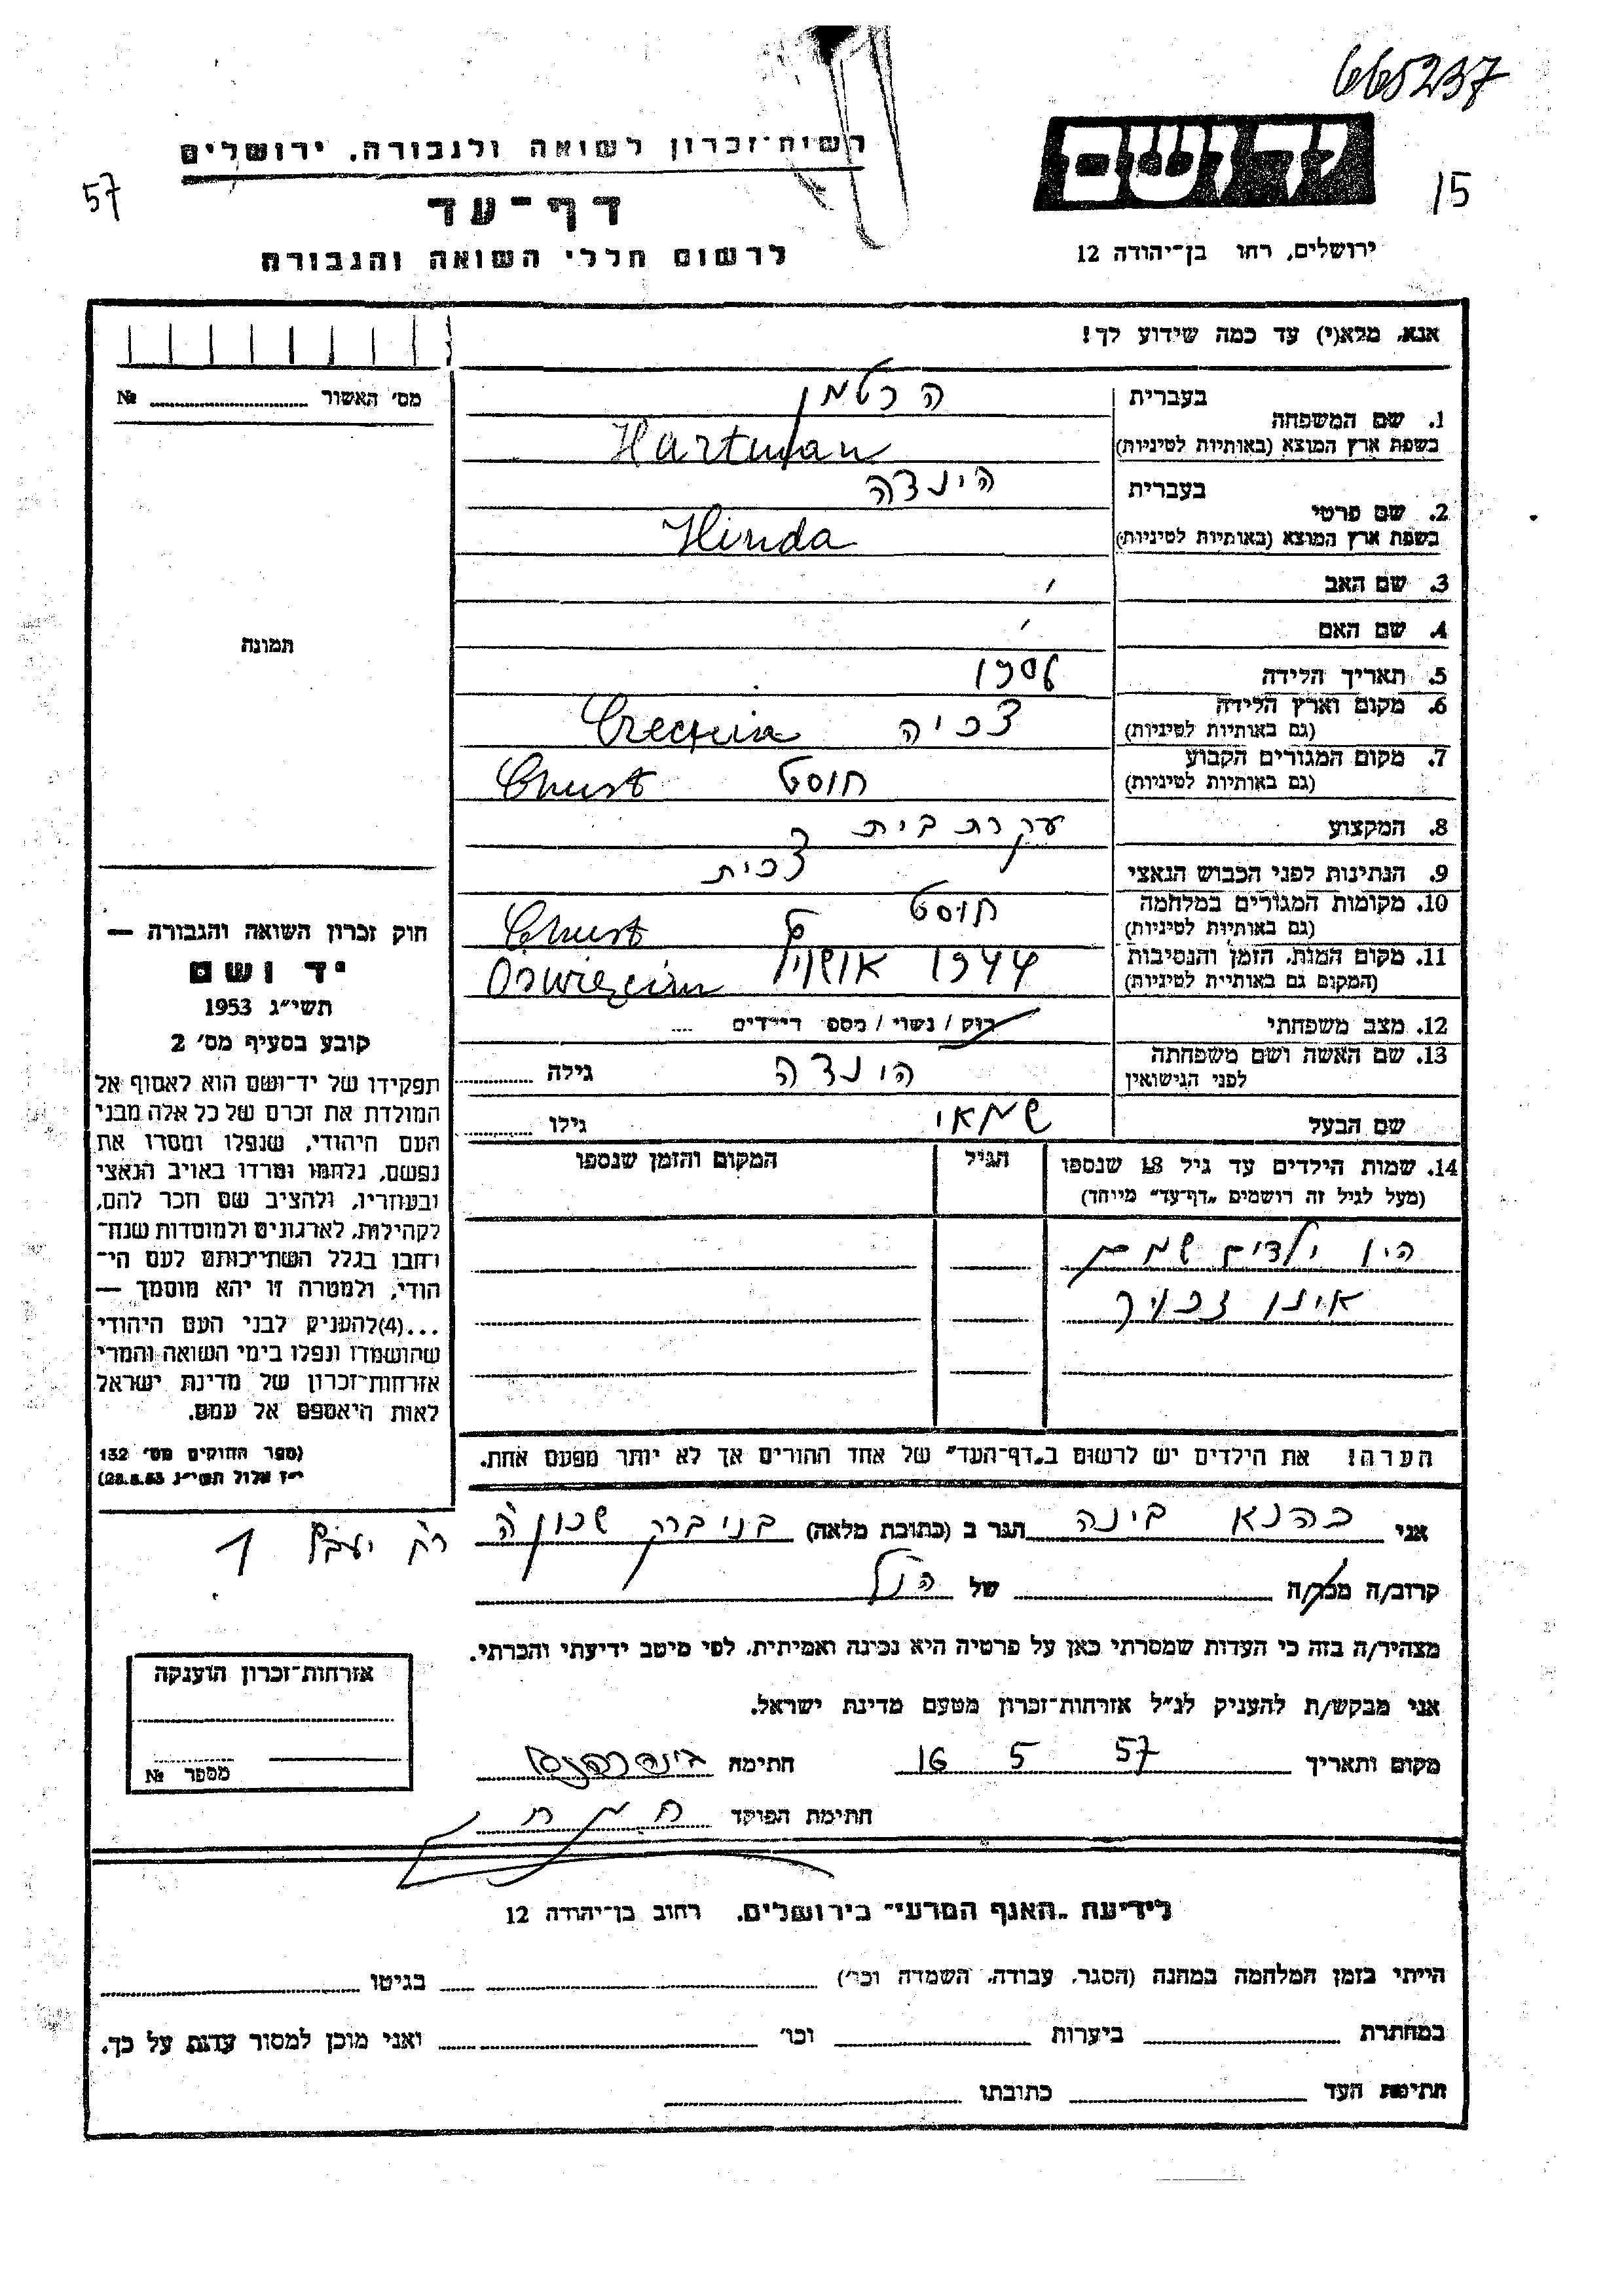 665237
רשות־זכרון לשואה ולגבורה, ירושלים
יד ושם
15
57
דף־עד
לרשום חללי השואה והגבורה
ירושלים, רחו בן־יהודה 12
אנא, מלא(י) עד כמה שידוע לך!
מס׳ האשור № ........
1. שם המשפחה
בעברית הרטמן
בשפת ארץ המוצא (באותיות לטיניות) Hartman
2. שם פרטי
בעברית הינדה
בשפת ארץ המוצא (באותיות לטיניות) Hinda
3. שם האב
4. שם האם
תמונה
5. תאריך הלידה
6. מקום וארץ הלידה
(גם באותיות לטיניות) צכיה
7. מקום המגורים הקבוע
(גם באותיות לטיניות) חוסט Chust
8. המקצוע עקרת בית
9. הנתינות לפני הכבוש הנאצי צכית
10. מקומות המגורים במלחמה
(גם באותיות לטיניות) חוסט Chust
11. מקום המות, הזמן והנסיבות
(המקום גם באותיית לטיניות) 1944
12. מצב משפחתי רוק / נשוי / מספ׳ הילדים ....
13. שם האשה ושם משפחתה
לפני הנישואין הינדה גילה ........
שם הבעל שמאי גילו ........
14. שמות הילדים עד גיל 18 שנספו
(מעל לגיל זה רושמים „דף־עד” מייחד)
הגיל
המקום והזמן שנספו
היו ילדים שמם
אינו זכור
הערה! את הילדים יש לרשום ב„דף־העד” של אחד ההורים אך לא יותר מפעם אחת.
חוק זכרון השואה והגבורה —
יד ושם
תשי״ג 1953
קובע בסעיף מס׳ 2
תפקידו של יד־ושם הוא לאסוף אל
המולדת את זכרם של כל אלה מבני
העם היהודי, שנפלו ומסרו את
נפשם, נלחמו ומרדו באויב הנאצי
ובעוזריו, ולהציב שם וזכר להם,
לקהילות, לארגונים ולמוסדות שנח־
רחבו בגלל השתייכותם לעם הי־
הודי, ולמטרה זו יהא מוסמך —
...(4)להעניק לבני העם היהודי
שהושמדו ונפלו בימי השואה והמרי
אזרחות־זכרון של מדינת ישראל
לאות היאספם אל עמם.
(ספר החוקים מס׳ 132
י״ז אלול תשי״ג 28.8.53)
אני כהנא בינה הגר ב (כתובת מלאה) בני ברק שכון ה
רח 1
קרוב/ה מכר/ה של הנ״ל
מצהיר/ה בזה כי העדות שמסרתי כאן על פרטיה היא נכונה ואמיתית, לפי מיטב ידיעתי והכרתי.
אני מבקש/ת להעניק לנ״ל אזרחות־זכרון מטעם מדינת ישראל.
מקום ותאריך 16 5 57 חתימה
חתימת הפוקד
אזרחות־זכרון הוענקה
מספר №
לידיעת „האגף המדעי” בירושלים, רחוב בן־יהודה 12
הייתי בזמן המלחמה במחנה (הסגר, עבודה, השמדה וכו׳) ........ בגיטו ........
במחתרת ........ ביערות ........ וכו׳ ........ ואני מוכן למסור עדות על כך.
חתימת העד ........ כתובתו ........